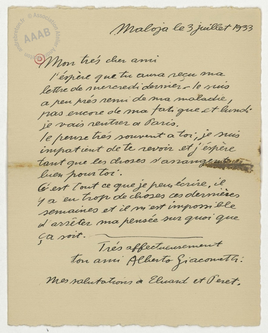 Maloja le 3 juillet 1933
AAAB
Mon très cher ami
j'espère que tu aura reçu ma
lettre de mercredi dernier. Je suis
a peu près remi de ma maladie,
pas encore de ma fatigue et lundi
je vais rentrer a Paris.
Je pense très souvent a toi, je suis
impatient de te revoir et j'espère
tant que les choses s'arrangent
bien pour toi.
C'est tout ce que je peu écrire, il
y a eu trop de choses ces dernières
semaines et il m'est impossible
d'arrêter ma pensée sur quoi que
ça soit.
Très affectueusement
ton ami Alberto Giacometti
Mes salutations a Eluard et Peret.